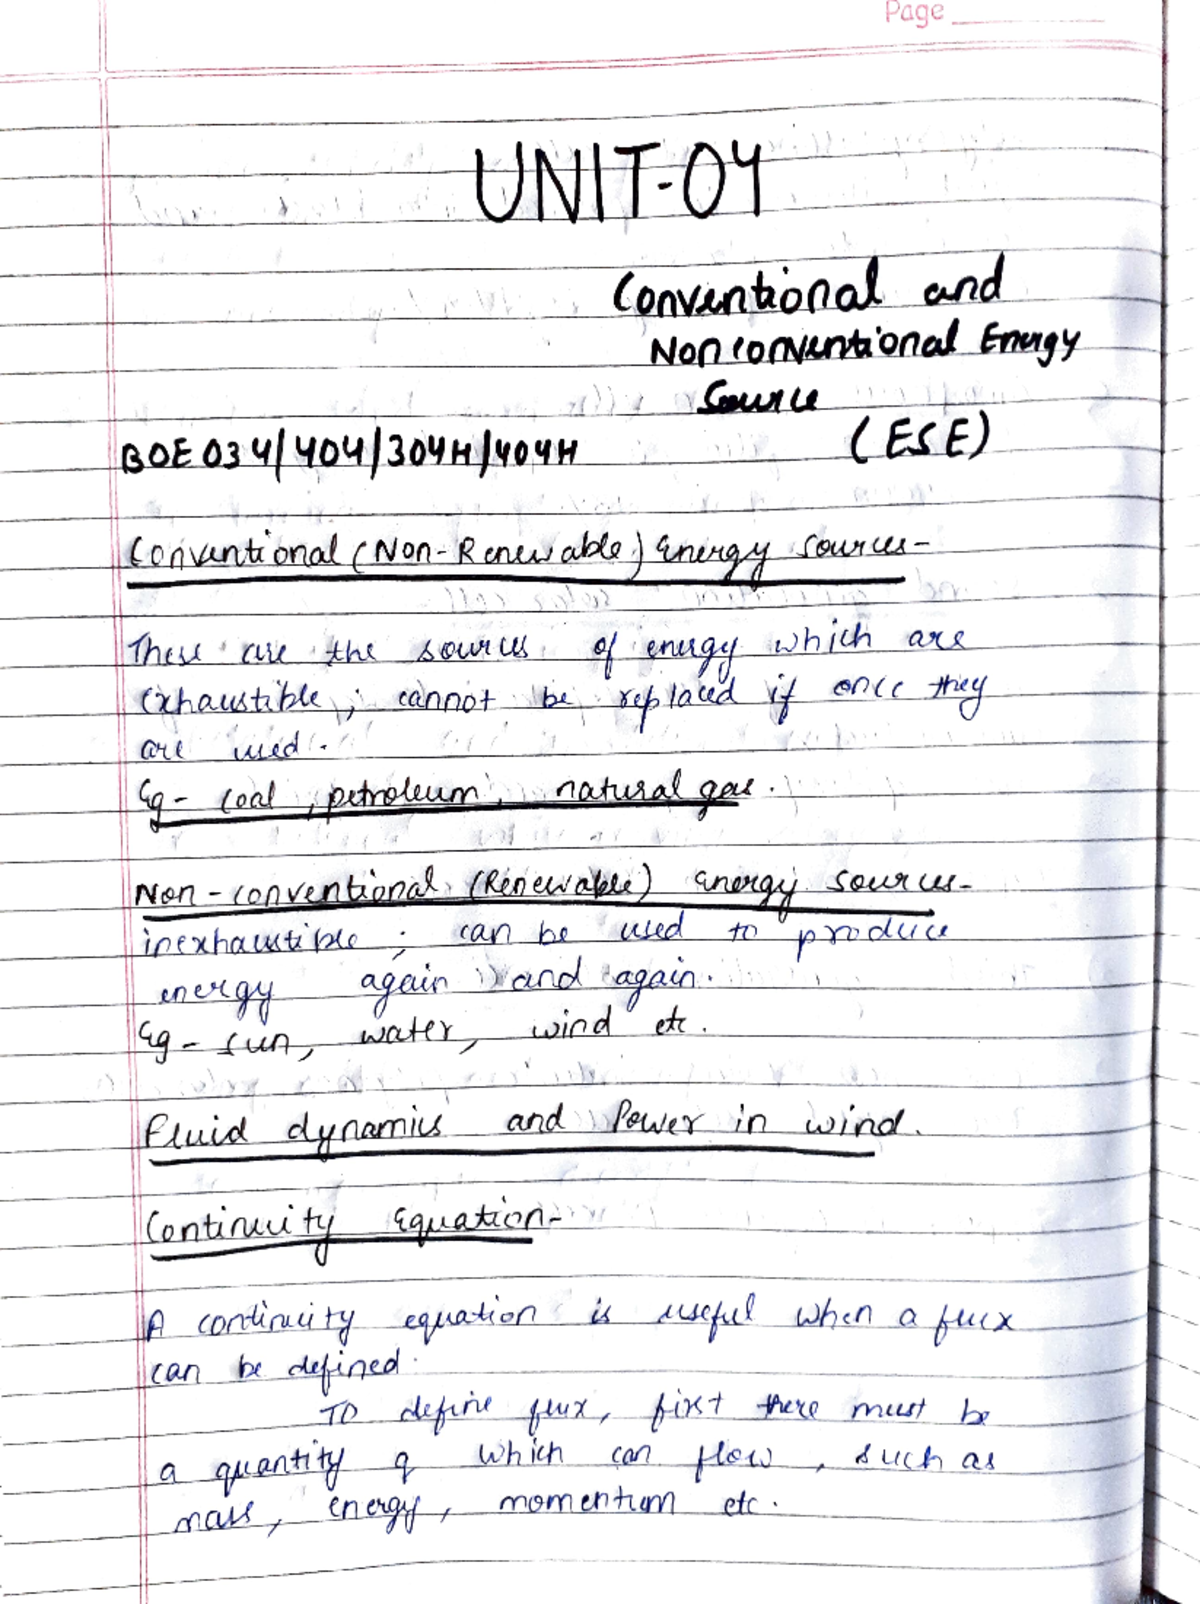 Page
UNIT-04
Conventional and
Nonconventional Energy
Source
(ESE)
BOE 034/404/304H/404H
Conventional (Non-Renewable) Energy sources-
These are the sources of energy which are
exhaustible; cannot be replaced if once they
are used.
Eg- coal, petroleum, natural gas.
Non-conventional (Renewable) energy sources-
inexhaustible; can be used to produce
energy again and again.
Eg- sun, water, wind etc.
Fluid dynamics and Power in wind.
Continuity Equation-
A continuity equation is useful when a flux
can be defined.
TO define flux, first there must be
a quantity q which can flow, such as
mass, energy, momentum etc.